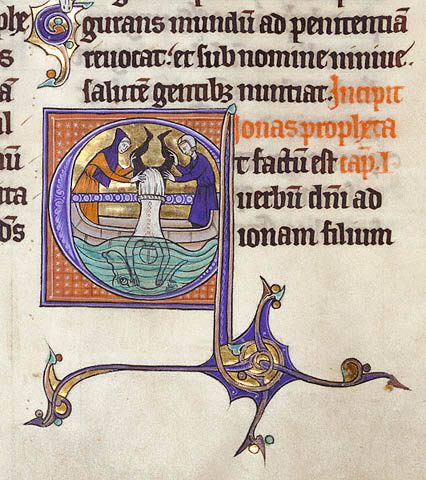 phe
s
a
il
aū
ta
d̄s
gurans mundū ad penitentiā
reuocat· et sub nomine niniue·
salutē gentibꝫ nuntiat. Incipit
ionas propheta
t factū est cap̄. I
uerbū dn̄i ad
ionam filium